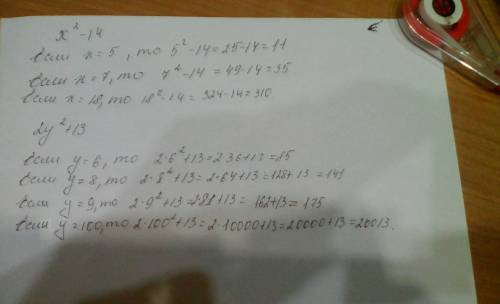 x² - 14
Если x = 5, то 5² - 14 = 25 - 14 = 11
Если x = 7, то 7² - 14 = 49 - 14 = 35
Если x = 18, то 18² - 14 = 324 - 14 = 310
2y² + 13
Если y = 6, то 2·6² + 13 = 2·36 + 13 = 85
Если y = 8, то 2·8² + 13 = 2·64 + 13 = 128 + 13 = 141
Если y = 9, то 2·9² + 13 = 2·81 + 13 = 162 + 13 = 175
Если y = 100, то 2·100² + 13 = 2·10000 + 13 = 20000 + 13 = 20013.